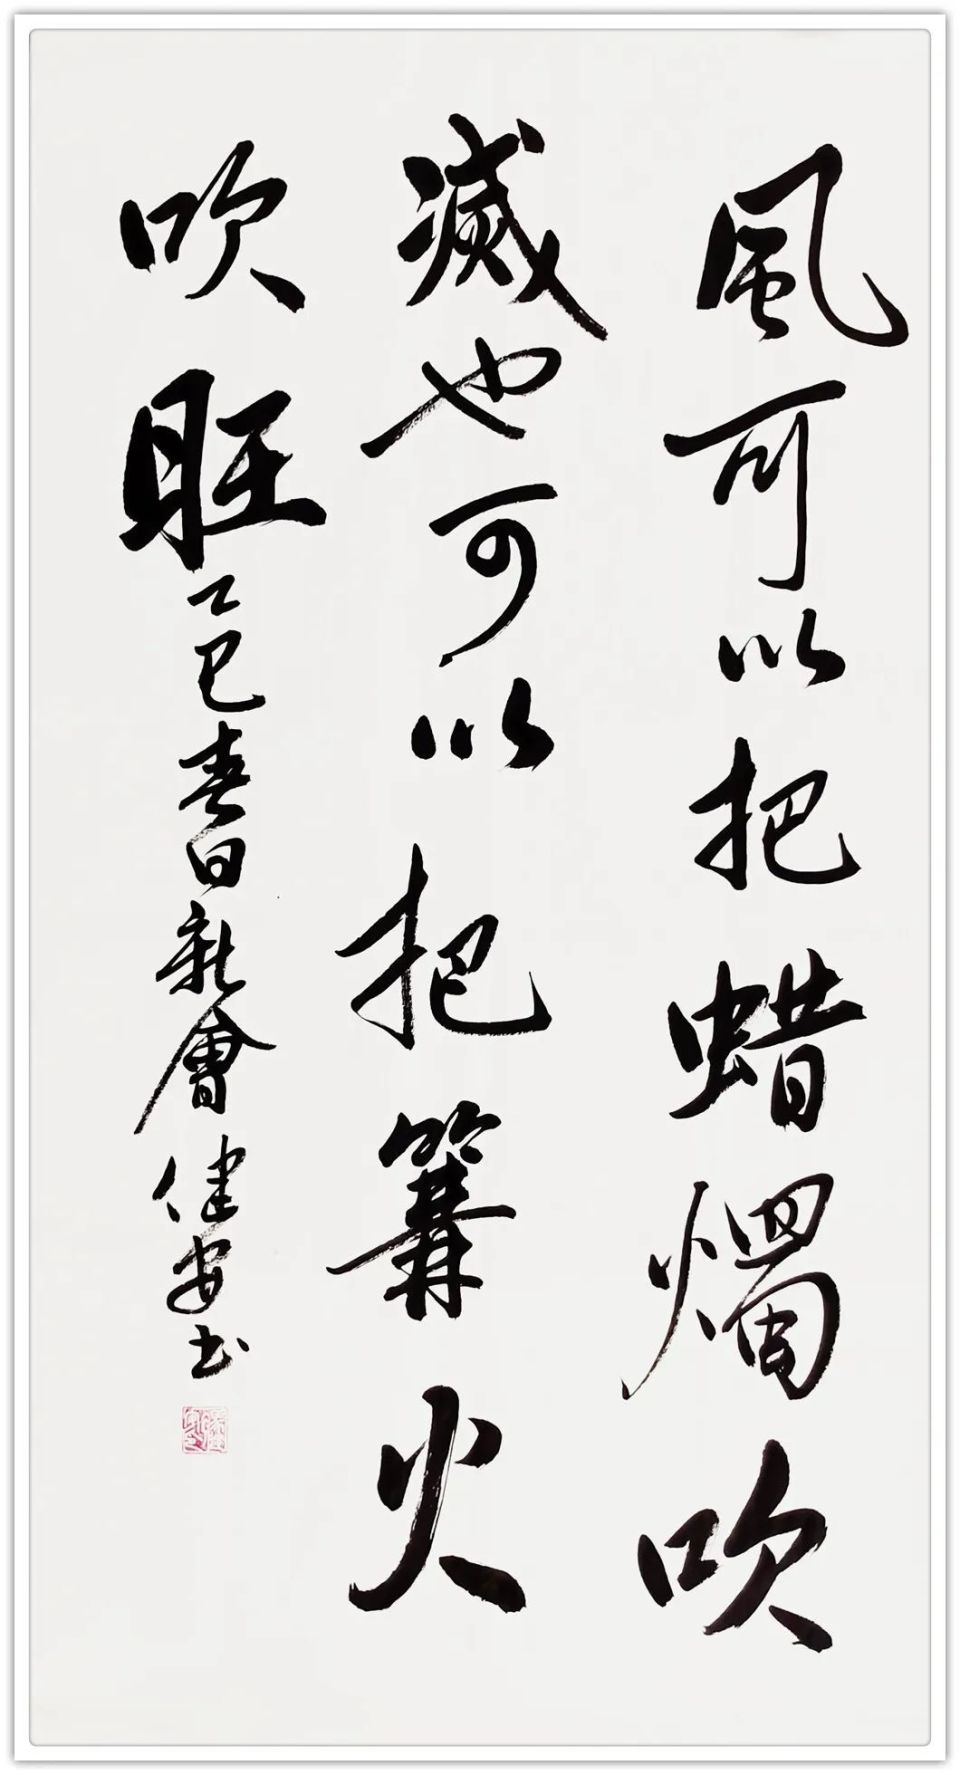 風可以把蜡燭吹
滅也可以把篝火
吹旺
乙巳春日新會健安书